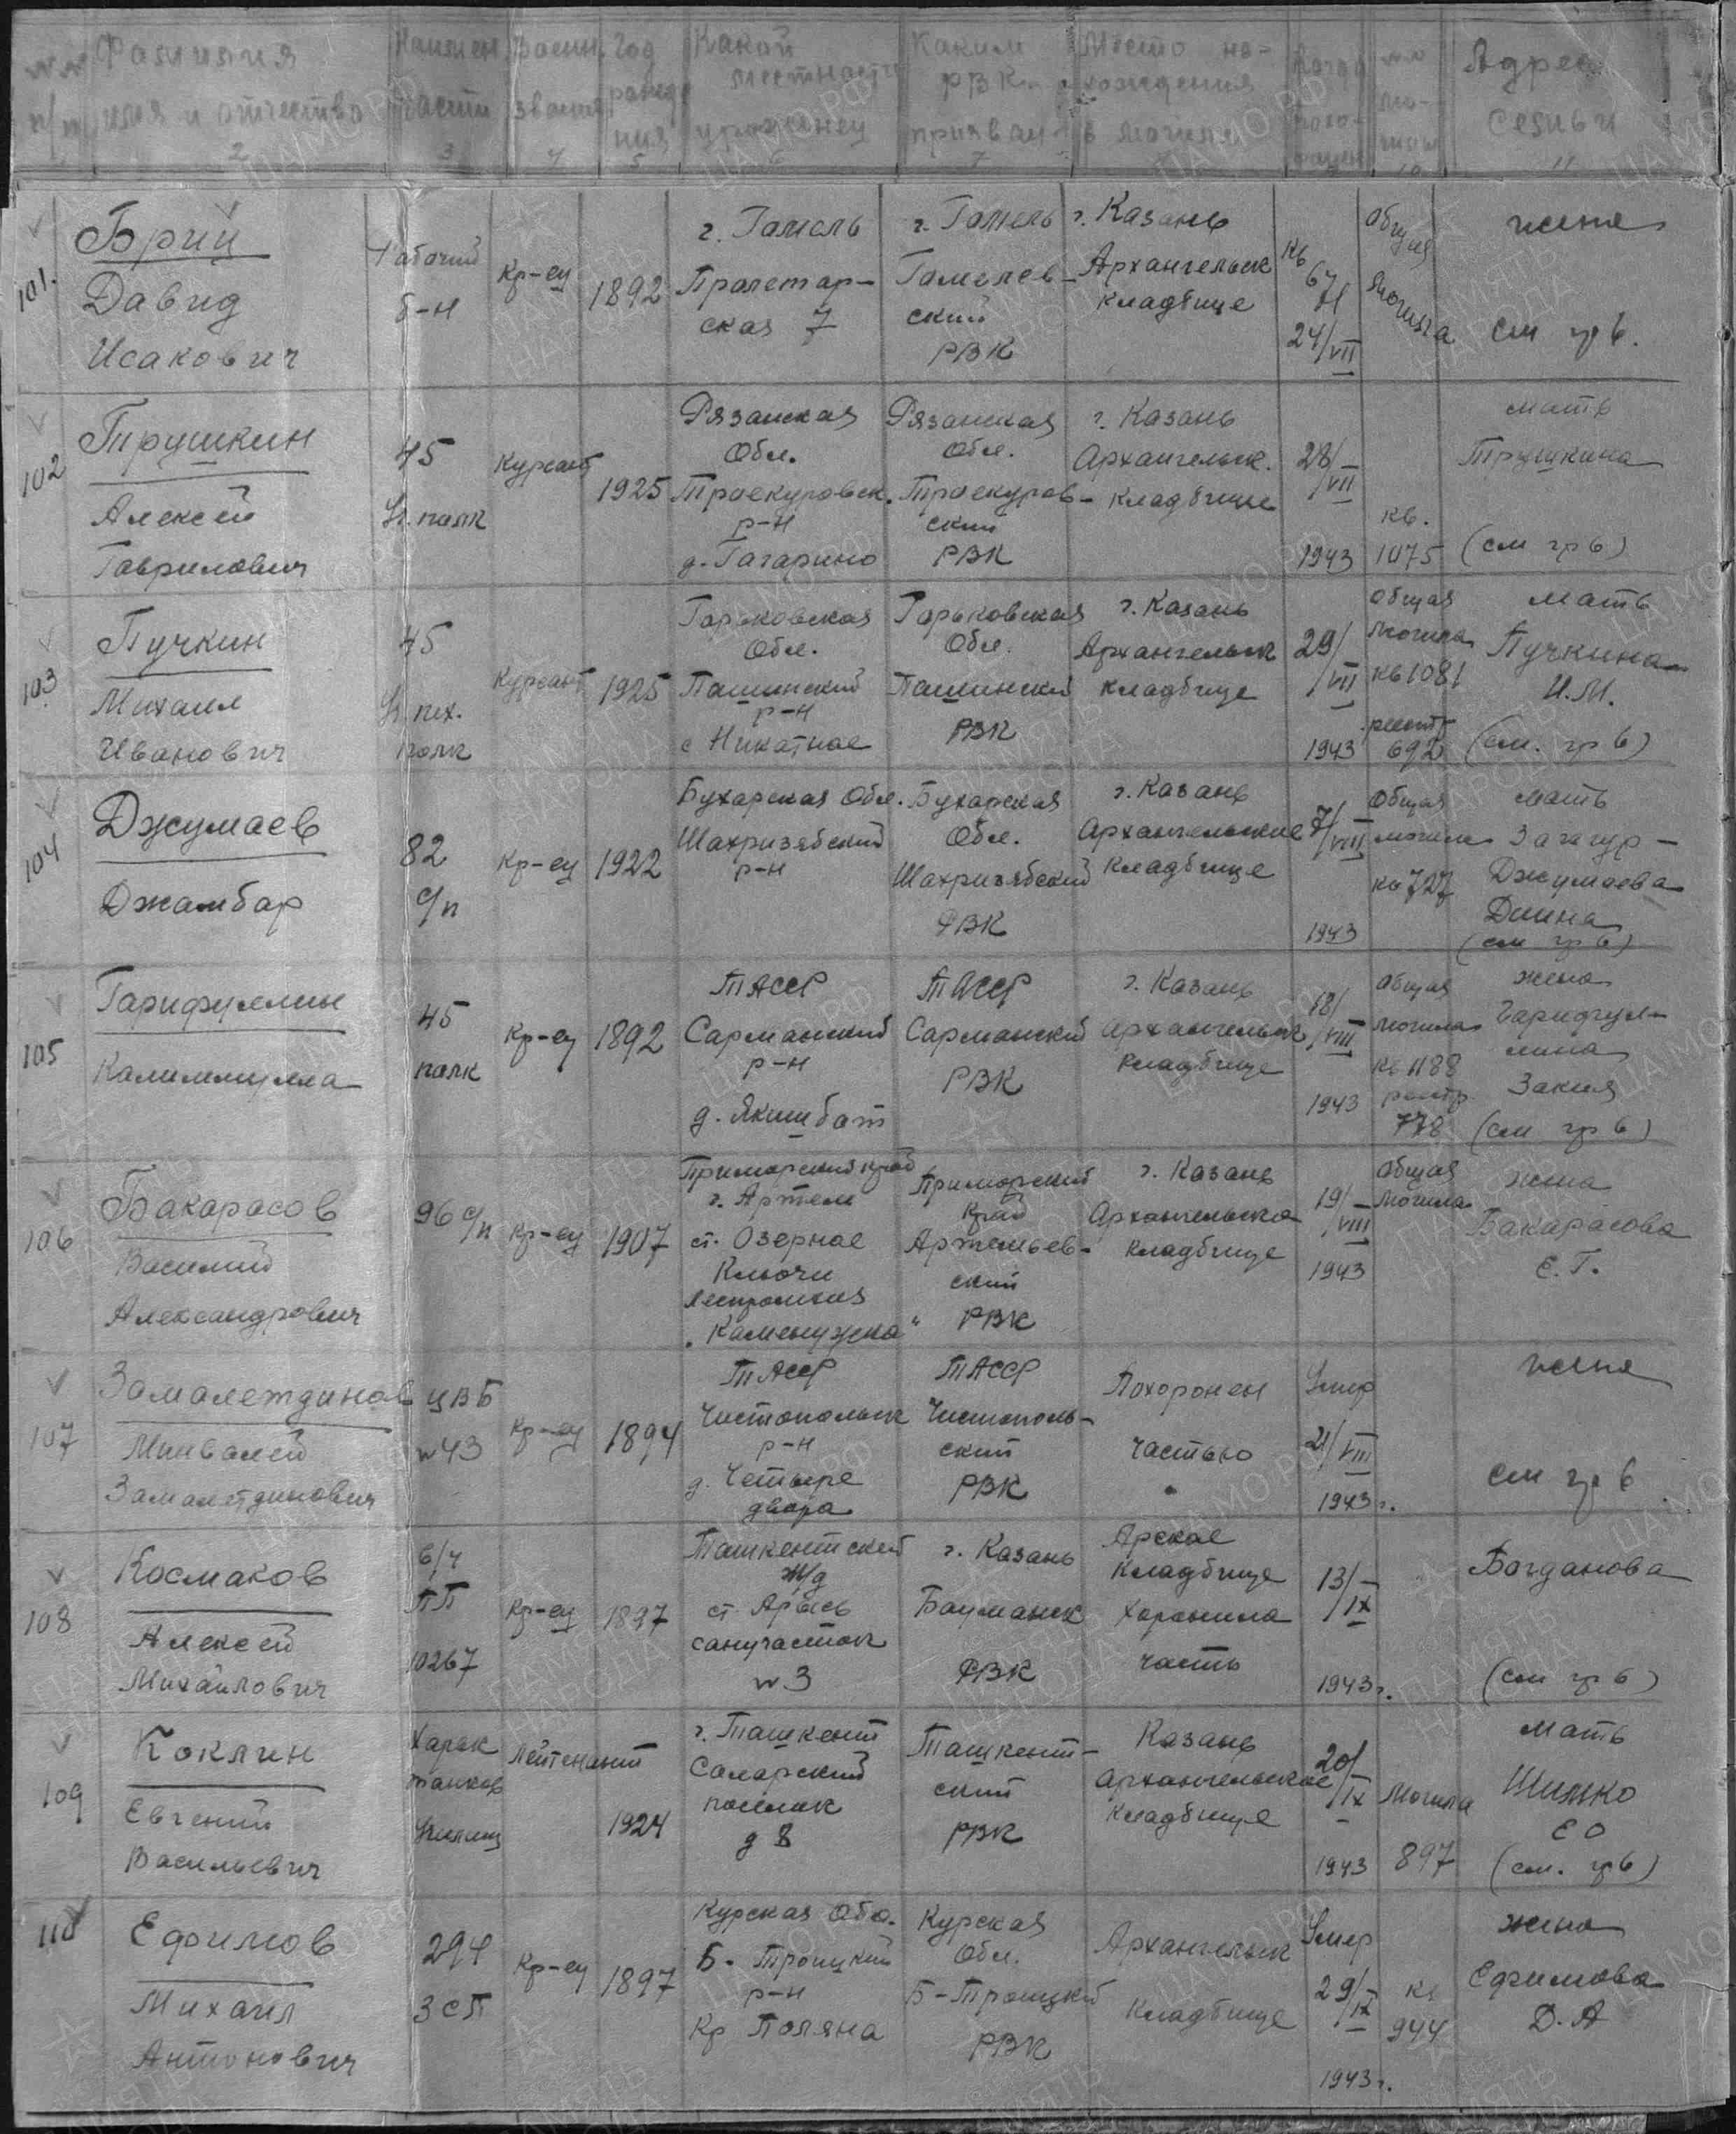 №№ п/п
Фамилия имя и отчество
Наимен части
Воинс. звание
Год рожде ния
Какой местности уроженец
Каким РВК призван
Место на- хождения могилы
Адрес семьи
2 3 4 5 6 7 11
101.
Брий
Давид
Исакович
Рабочий
б-н
Кр-ец
1892
г. Гомель
Пролетар-
ская 7
г. Гомель
Гомелев-
ский
РВК
г. Казань
Архангельск
кладбище
кв
67
24/VII
общая
могила
жена
см гр 6.
102
Трушкин
Алексей
Гаврилович
45
У. полк
Курсант
1925
Рязанская
Обл.
Троекуровск.
р-н
д. Гагарино
Рязанская
Обл.
Троекуров-
ский
РВК
г. Казань
Архангельск.
кладбище
28/VII
1943
кв.
1075
мать
Трушкина
(см гр 6)
103
Пучкин
Михаил
Иванович
45
У. пех.
полк
Курсант
1925
Горьковская
Обл.
Пашинский
р-н
с Никатное
Горьковская
Обл.
Пашинский
РВК
г. Казань
Архангельск
кладбище
29/VII
1943
общая
могила
кв 1081
реестр
692
мать
Пучкина
И.М.
(см. гр 6)
104
Джумаев
Джамбар
82
с/п
Кр-ец
1922
Бухарская Обл.
Шахризябский
р-н
Бухарская
Обл.
Шахризябский
РВК
г. Казань
Архангельские
кладбище
7/VIII
1943
Общая
могила
кв 727
мать
Загагур-
Джумаева
Диина
(см гр 6)
105
Гарифуллин
Калиммулла
45
полк
Кр-ец
1892
ТАССР
Сармановский
р-н
д. Якшибат
ТАССР
Сармановский
РВК
г. Казань
Архангельск
кладбище
18/VIII
1943
общая
могила
кв 1188
реестр
778
жена
Гарифул-
лина
Закия
(см гр 6)
106
Бакарасов
Василий
Александрович
96 с/п
Кр-ец
1907
Приморский край
г. Артем
ст. Озерное
Ключи
Леспромхоз
„Каменушка“
Приморский
край
Артемьев-
ский
РВК
г. Казань
Архангельское
кладбище
19/VIII
1943
общая
могила
жена
Бакарасова
Е. Г.
107
Замалетдинов
Минвалей
Замалетдинович
ЦВБ
№43
Кр-ец
1894
ТАССР
Чистопольск
р-н
д. Четыре
двора
ТАССР
Чистополь-
ский
РВК
Похоронен
частью
Умер
21/VIII
1943г.
жена
см гр 6
108
Космаков
Алексей
Михайлович
в/ч
ПП
10267
Кр-ец
1897
Ташкентской
ж/д
ст Арысь
санучасток
№ 3
г. Казань
Бауманск
РВК
Арское
кладбище
хоронила
часть
13/IX
1943г.
Богданова
(см гр 6)
109
Коклин
Евгений
Васильевич
Харьк
танков
училищ
Лейтенант
1924
г. Ташкент
Саларский
поселок
д 8
Ташкент-
ский
РВК
Казань
Архангельское
кладбище
20/IX
1943
Могила
897
мать
Шишко
Е О
(см. гр 6)
110
Ефимов
Михаил
Антонович
294
ЗСП
Кр-ец
1897
Курская Обл.
Б-Троицкий
р-н
Кр Поляна
Курская
Обл.
Б-Троицкий
РВК
Архангельск
кладбище
Умер
29/IX
1943г.
кв
944
жена
Ефимова
Д. А